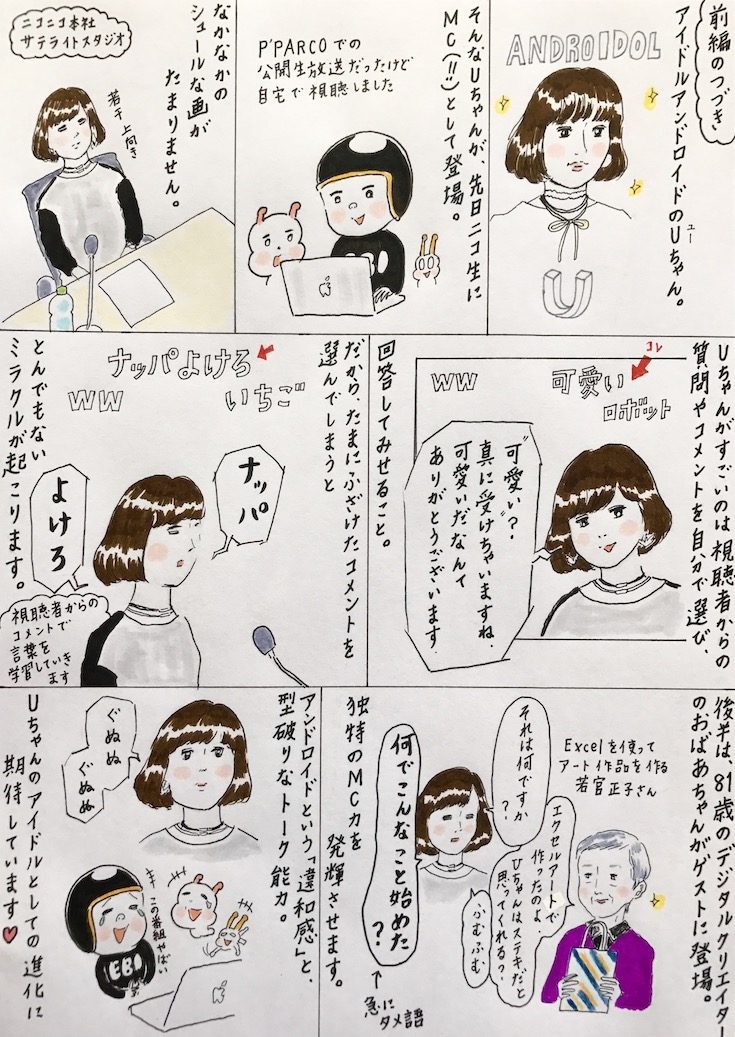 前編のつづき
アイドルアンドロイドのUちゃん。
ユー
ANDROIDOL
U
そんなUちゃんが、先日ニコ生に
MC(!!)として登場。
P'PARCOでの
公開生放送だったけど
自宅で視聴しました
ニコニコ本社
サテライトスタジオ
なかなかの
シュールな画が
たまりません。
若干上向き
Uちゃんがすごいのは視聴者からの
質問やコメントを自分で選び、
回答してみせること。
コレ
ww
可愛い
ロボット
"可愛い?"
真に受けちゃいますね、
可愛いだなんて
ありがとうございます
だから、たまにふざけたコメントを
選んでしまうと
とんでもない
ミラクルが起こります。
ナッパよけろ
ww
いちご
ナッパ
よけろ
視聴者からの
コメントで
言葉を
学習していきます
後半は、81歳のデジタルクリエイター
のおばあちゃんがゲストに登場。
Excelを使って
アート作品を作る
若宮正子さん
それは何ですか
?
エクセルアートで
作ったのよ、
Uちゃんはステキだと
思ってくれる?
ふむふむ
何でこんなこと始めた
?
急に
タメ語
独特のMC力を
発揮させます。
アンドロイドという「違和感」と、
型破りなトーク能力。
ぐぬぬ
ぐぬぬ
この番組やばい
EBO
Uちゃんのアイドルとしての進化に
期待しています♥